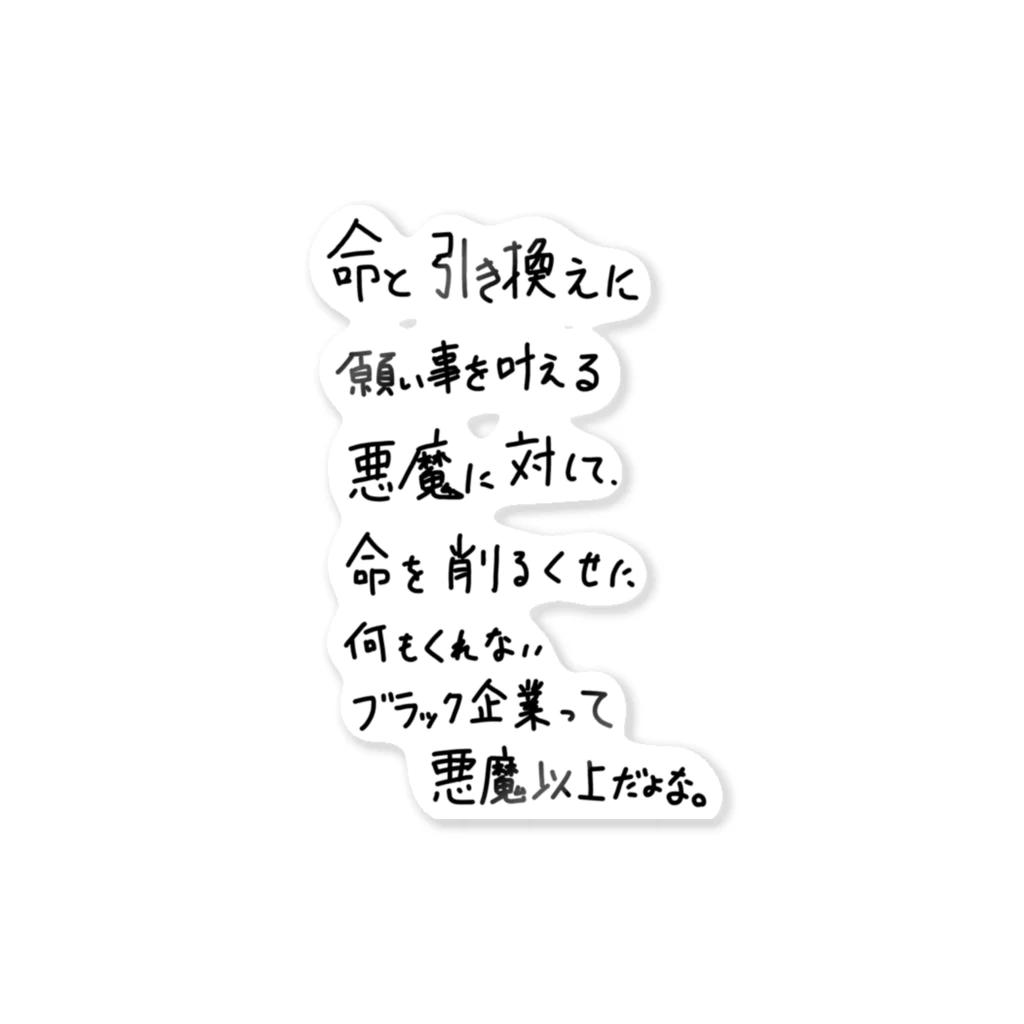 命と引き換えに
願い事を叶える
悪魔に対して、
命を削るくせに
何もくれない
ブラック企業って
悪魔以上だよな。